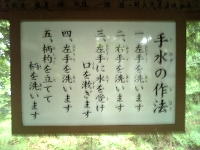 手水の作法
一、左手を洗います
二、右手を洗います
三、左手に水を受け
口を漱ぎます
四、左手を洗います
五、柄杓を立てて
柄を洗います